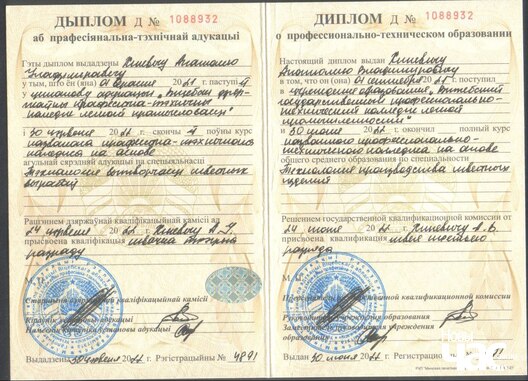 ДЫПЛОМ Д № 1088932
аб прафесіянальна-тэхнічнай адукацыі
Гэты дыплом выдадзены Хіневічу Анатолію
Уладзіміравічу
у тым, што ён (яна) 01 верасня 20 г. паступіў
ва установу адукацыі "Віцебскі дзяр-
жаўны прафесійна-тэхнічны
каледж лёгкай прамысловасці"
і 30 чэрвеня 20 г. скончыў поўны курс
названага прафесійна-тэхнічнага
каледжа на аснове
агульнай сярэдняй адукацыі па спецыяльнасці
Тэхналогія вытворчасці швейных
вырабаў
Рашэннем дзяржаўнай кваліфікацыйнай камісіі ад
24 чэрвеня 20 г. Хіневічу А.У.
прысвоена кваліфікацыя
разраду
М.П.
Старшыня дзяржаўнай кваліфікацыйнай камісіі
Кіраўнік установы адукацыі
Намеснік кіраўніка установы адукацыі
Выдадзены 30 чэрвеня 20 г. Рэгістрацыйны № 4891
ДИПЛОМ Д № 1088932
о профессионально-техническом образовании
Настоящий диплом выдан Хиневичу
Анатолию Владимировичу
в том, что он (она) 01 сентября 20 г. поступил
в учреждение образования "Витебский
государственный профессионально-
технический колледж легкой
промышленности"
и 30 июня 20 г. окончил полный курс
названного профессионально-
технического колледжа на основе
общего среднего образования по специальности
Технология производства швейных
изделий
Решением государственной квалификационной комиссии от
24 июня 20 г. Хиневичу А.В.
присвоена квалификация швея третьего
разряда
М.П.
Председатель государственной квалификационной комиссии
Руководитель учреждения образования
Заместитель руководителя учреждения
образования
Выдан 30 июня 20 г. Регистрационный